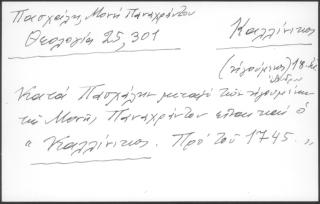 Πασχάλη, Μονή Παναχράντου
Θεολογία 25, 301
Καλλίνικος
(ηγούμενος) 18
Κατά Πασχάλην μεταξύ των ηγουμένων
της Μονής Παναχράντου είναι και ο
« Καλλίνικος. Πρό τού 1745. »